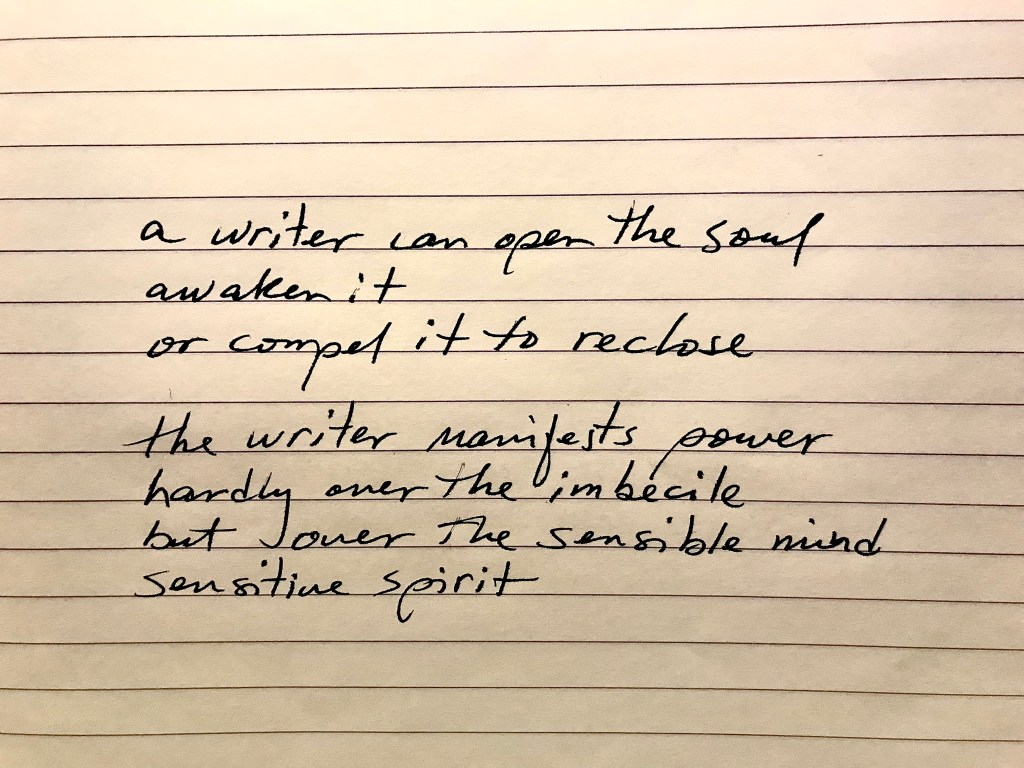 a writer can open the soul
awaken it
or compel it to reclose
the writer manifests power
hardly over the imbecile
but over the sensible mind
sensitive spirit